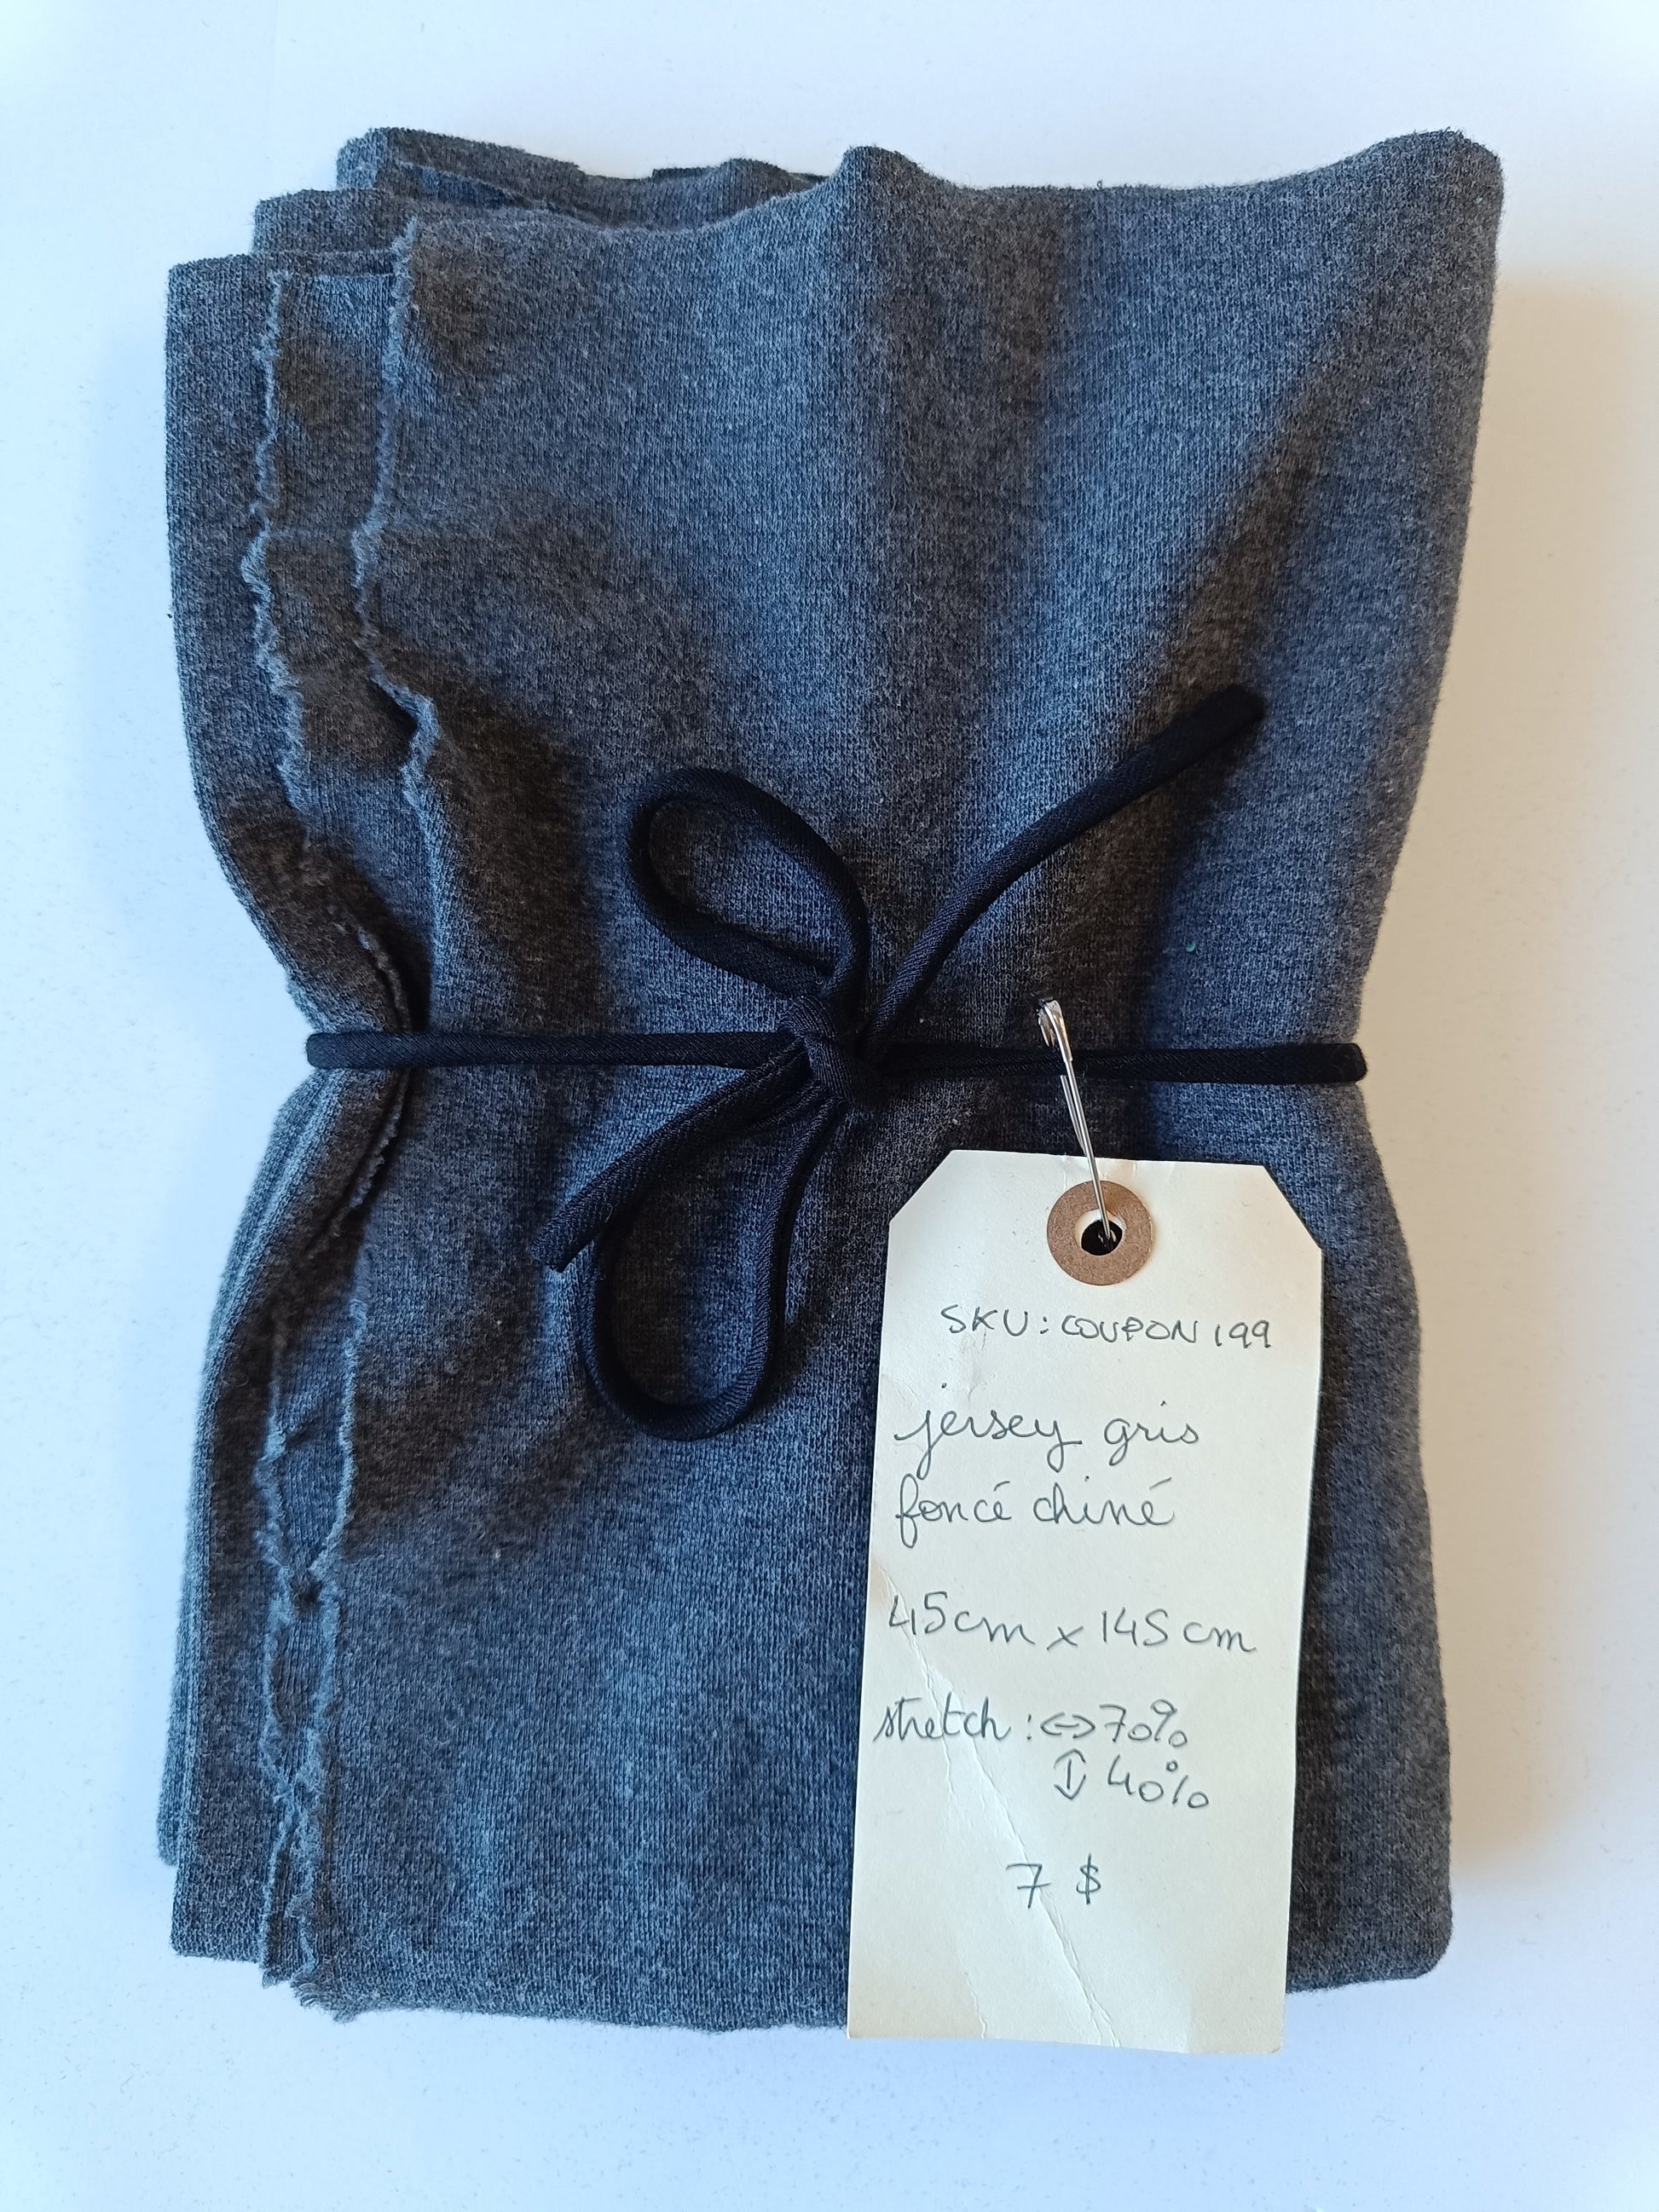 SKU: COUPON 199
jersey gris
foncé chiné
45cm x 145 cm
stretch : ↔ 70%
↕ 40%
7 $